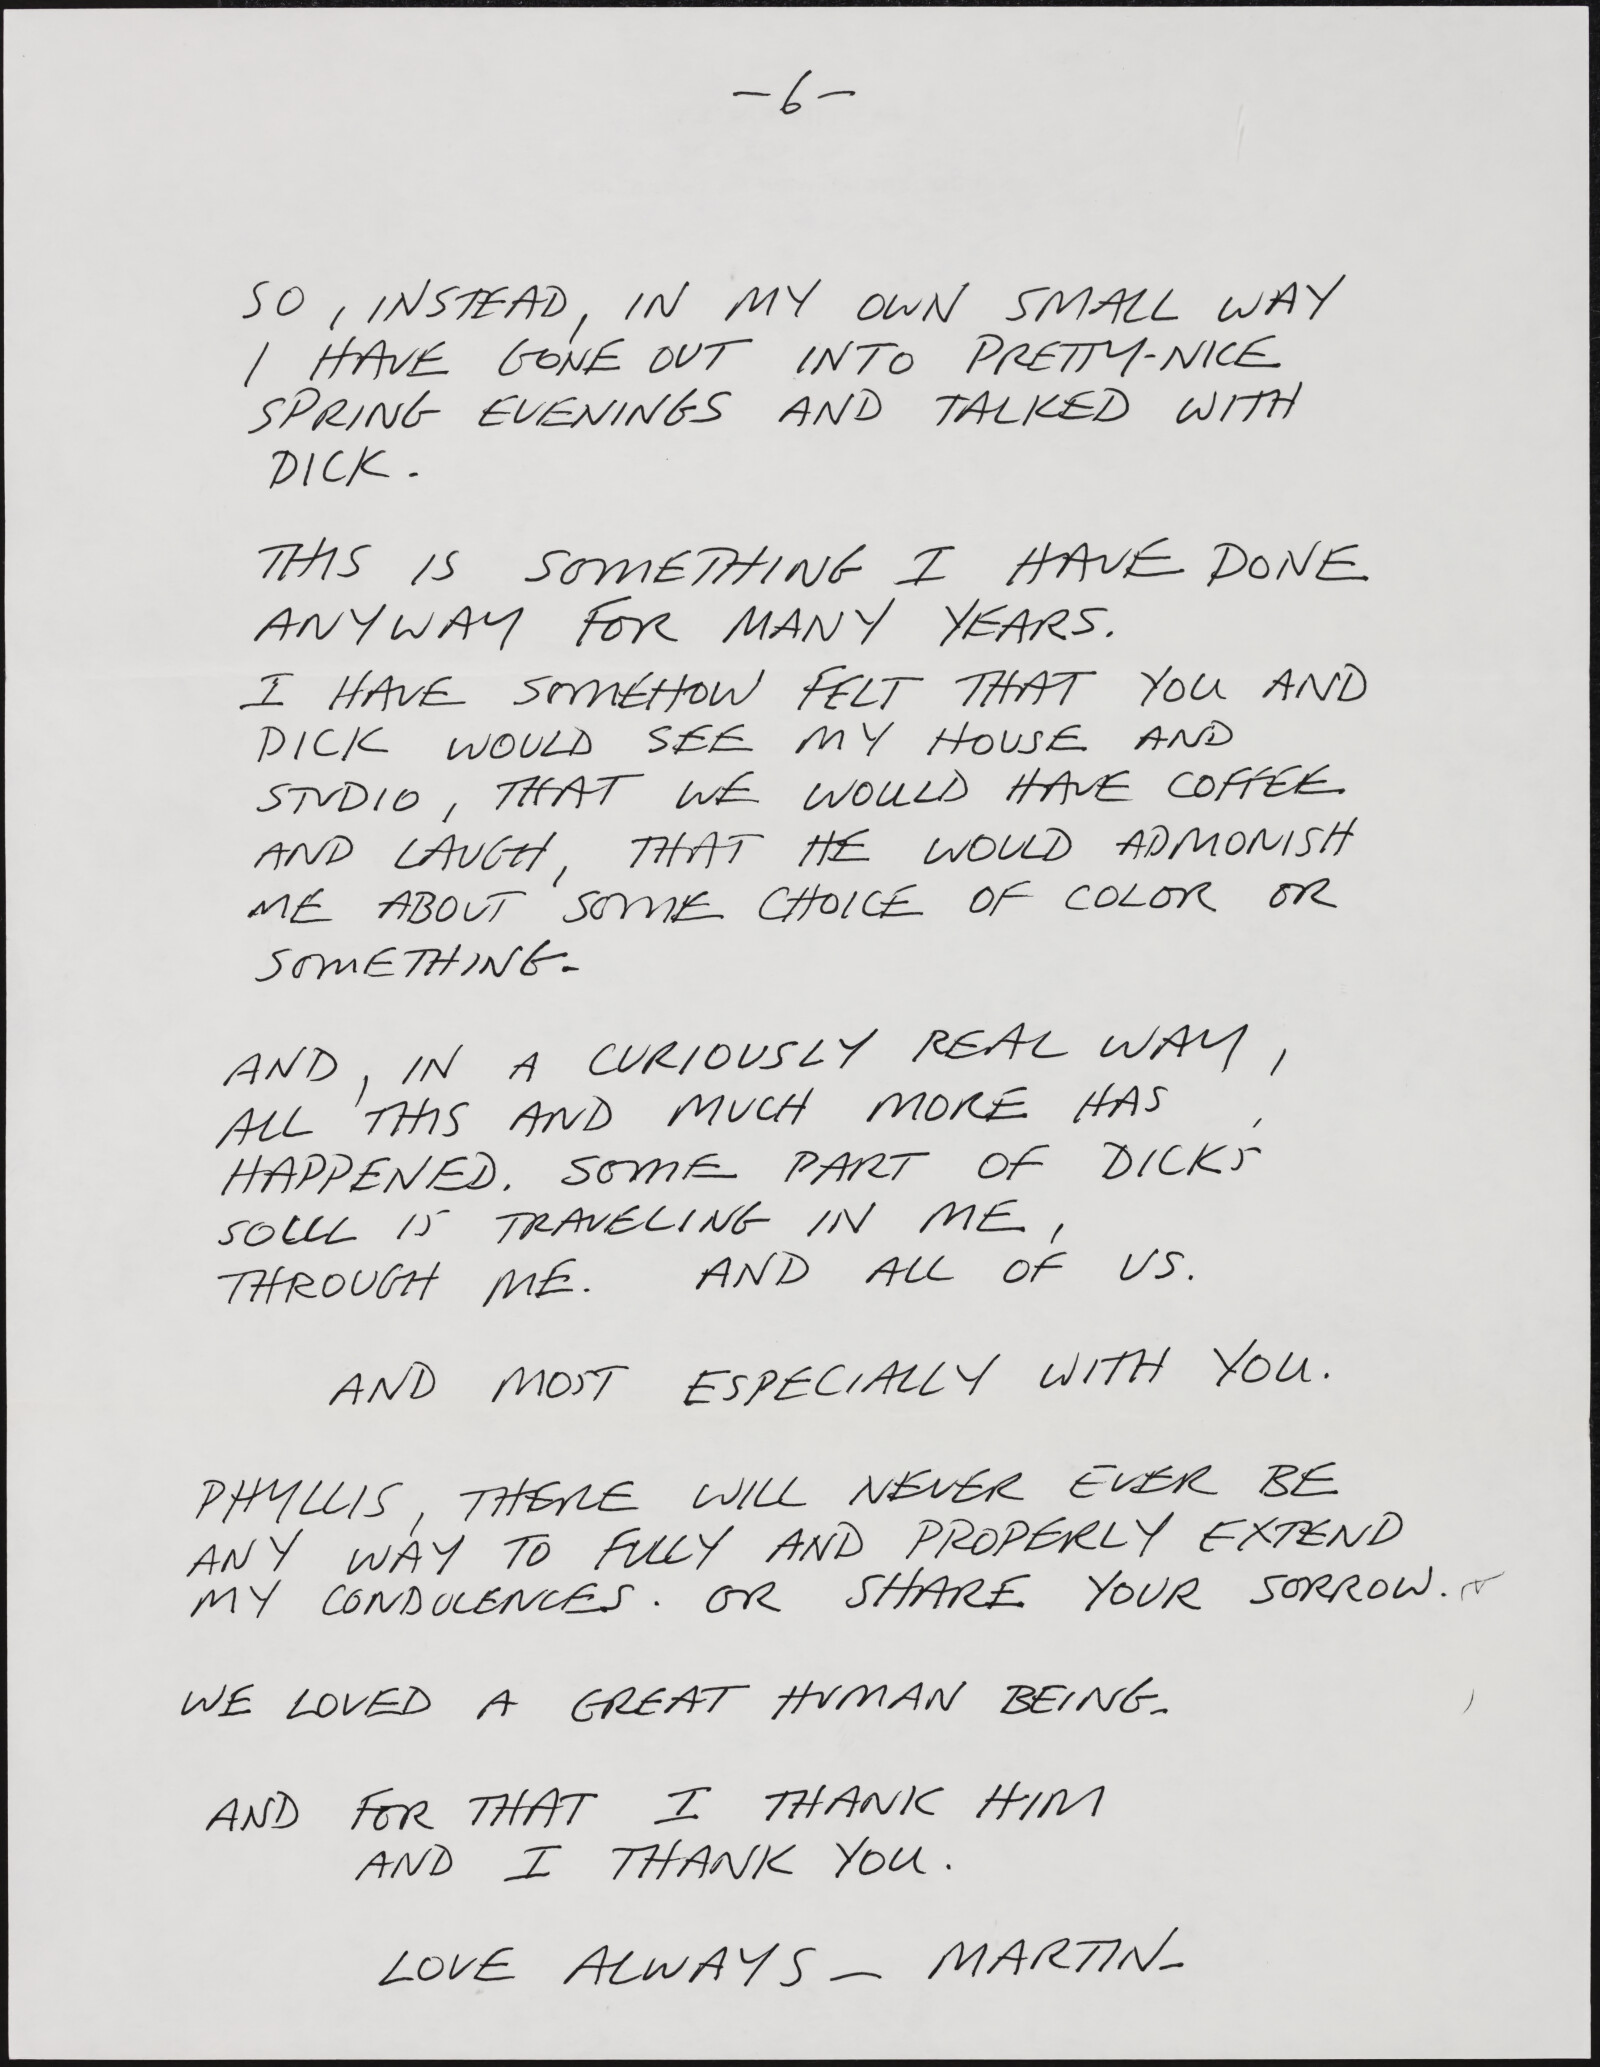 -6-
SO, INSTEAD, IN MY OWN SMALL WAY
I HAVE GONE OUT INTO PRETTY-NICE
SPRING EVENINGS AND TALKED WITH
DICK.
THIS IS SOMETHING I HAVE DONE
ANYWAY FOR MANY YEARS.
I HAVE SOMEHOW FELT THAT YOU AND
DICK WOULD SEE MY HOUSE AND
STUDIO, THAT WE WOULD HAVE COFFEE
AND LAUGH, THAT HE WOULD ADMONISH
ME ABOUT SOME CHOICE OF COLOR OR
SOMETHING-
AND, IN A CURIOUSLY REAL WAY,
ALL THIS AND MUCH MORE HAS
HAPPENED. SOME PART OF DICK'S
SOUL IS TRAVELING IN ME,
THROUGH ME. AND ALL OF US.
AND MOST ESPECIALLY WITH YOU.
PHYLLIS, THERE WILL NEVER EVER BE
ANY WAY TO FULLY AND PROPERLY EXTEND
MY CONDOLENCES. OR SHARE YOUR SORROW.
WE LOVED A GREAT HUMAN BEING-
AND FOR THAT I THANK HIM
AND I THANK YOU.
LOVE ALWAYS - MARTIN-